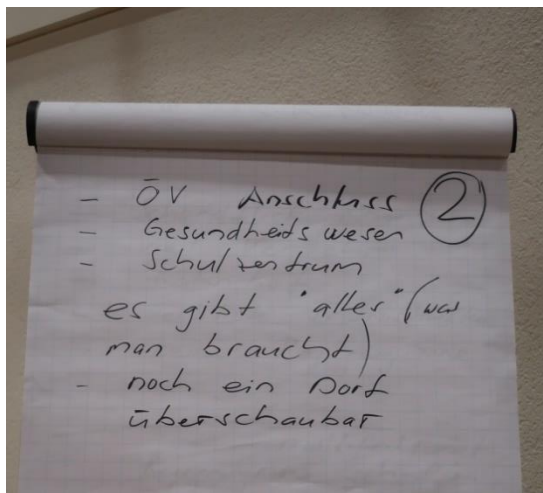 - ÖV Anschluss
②
- Gesundheitswesen
- Schulzentrum
es gibt "alles" (was
man braucht)
- noch ein Dorf
überschaubar